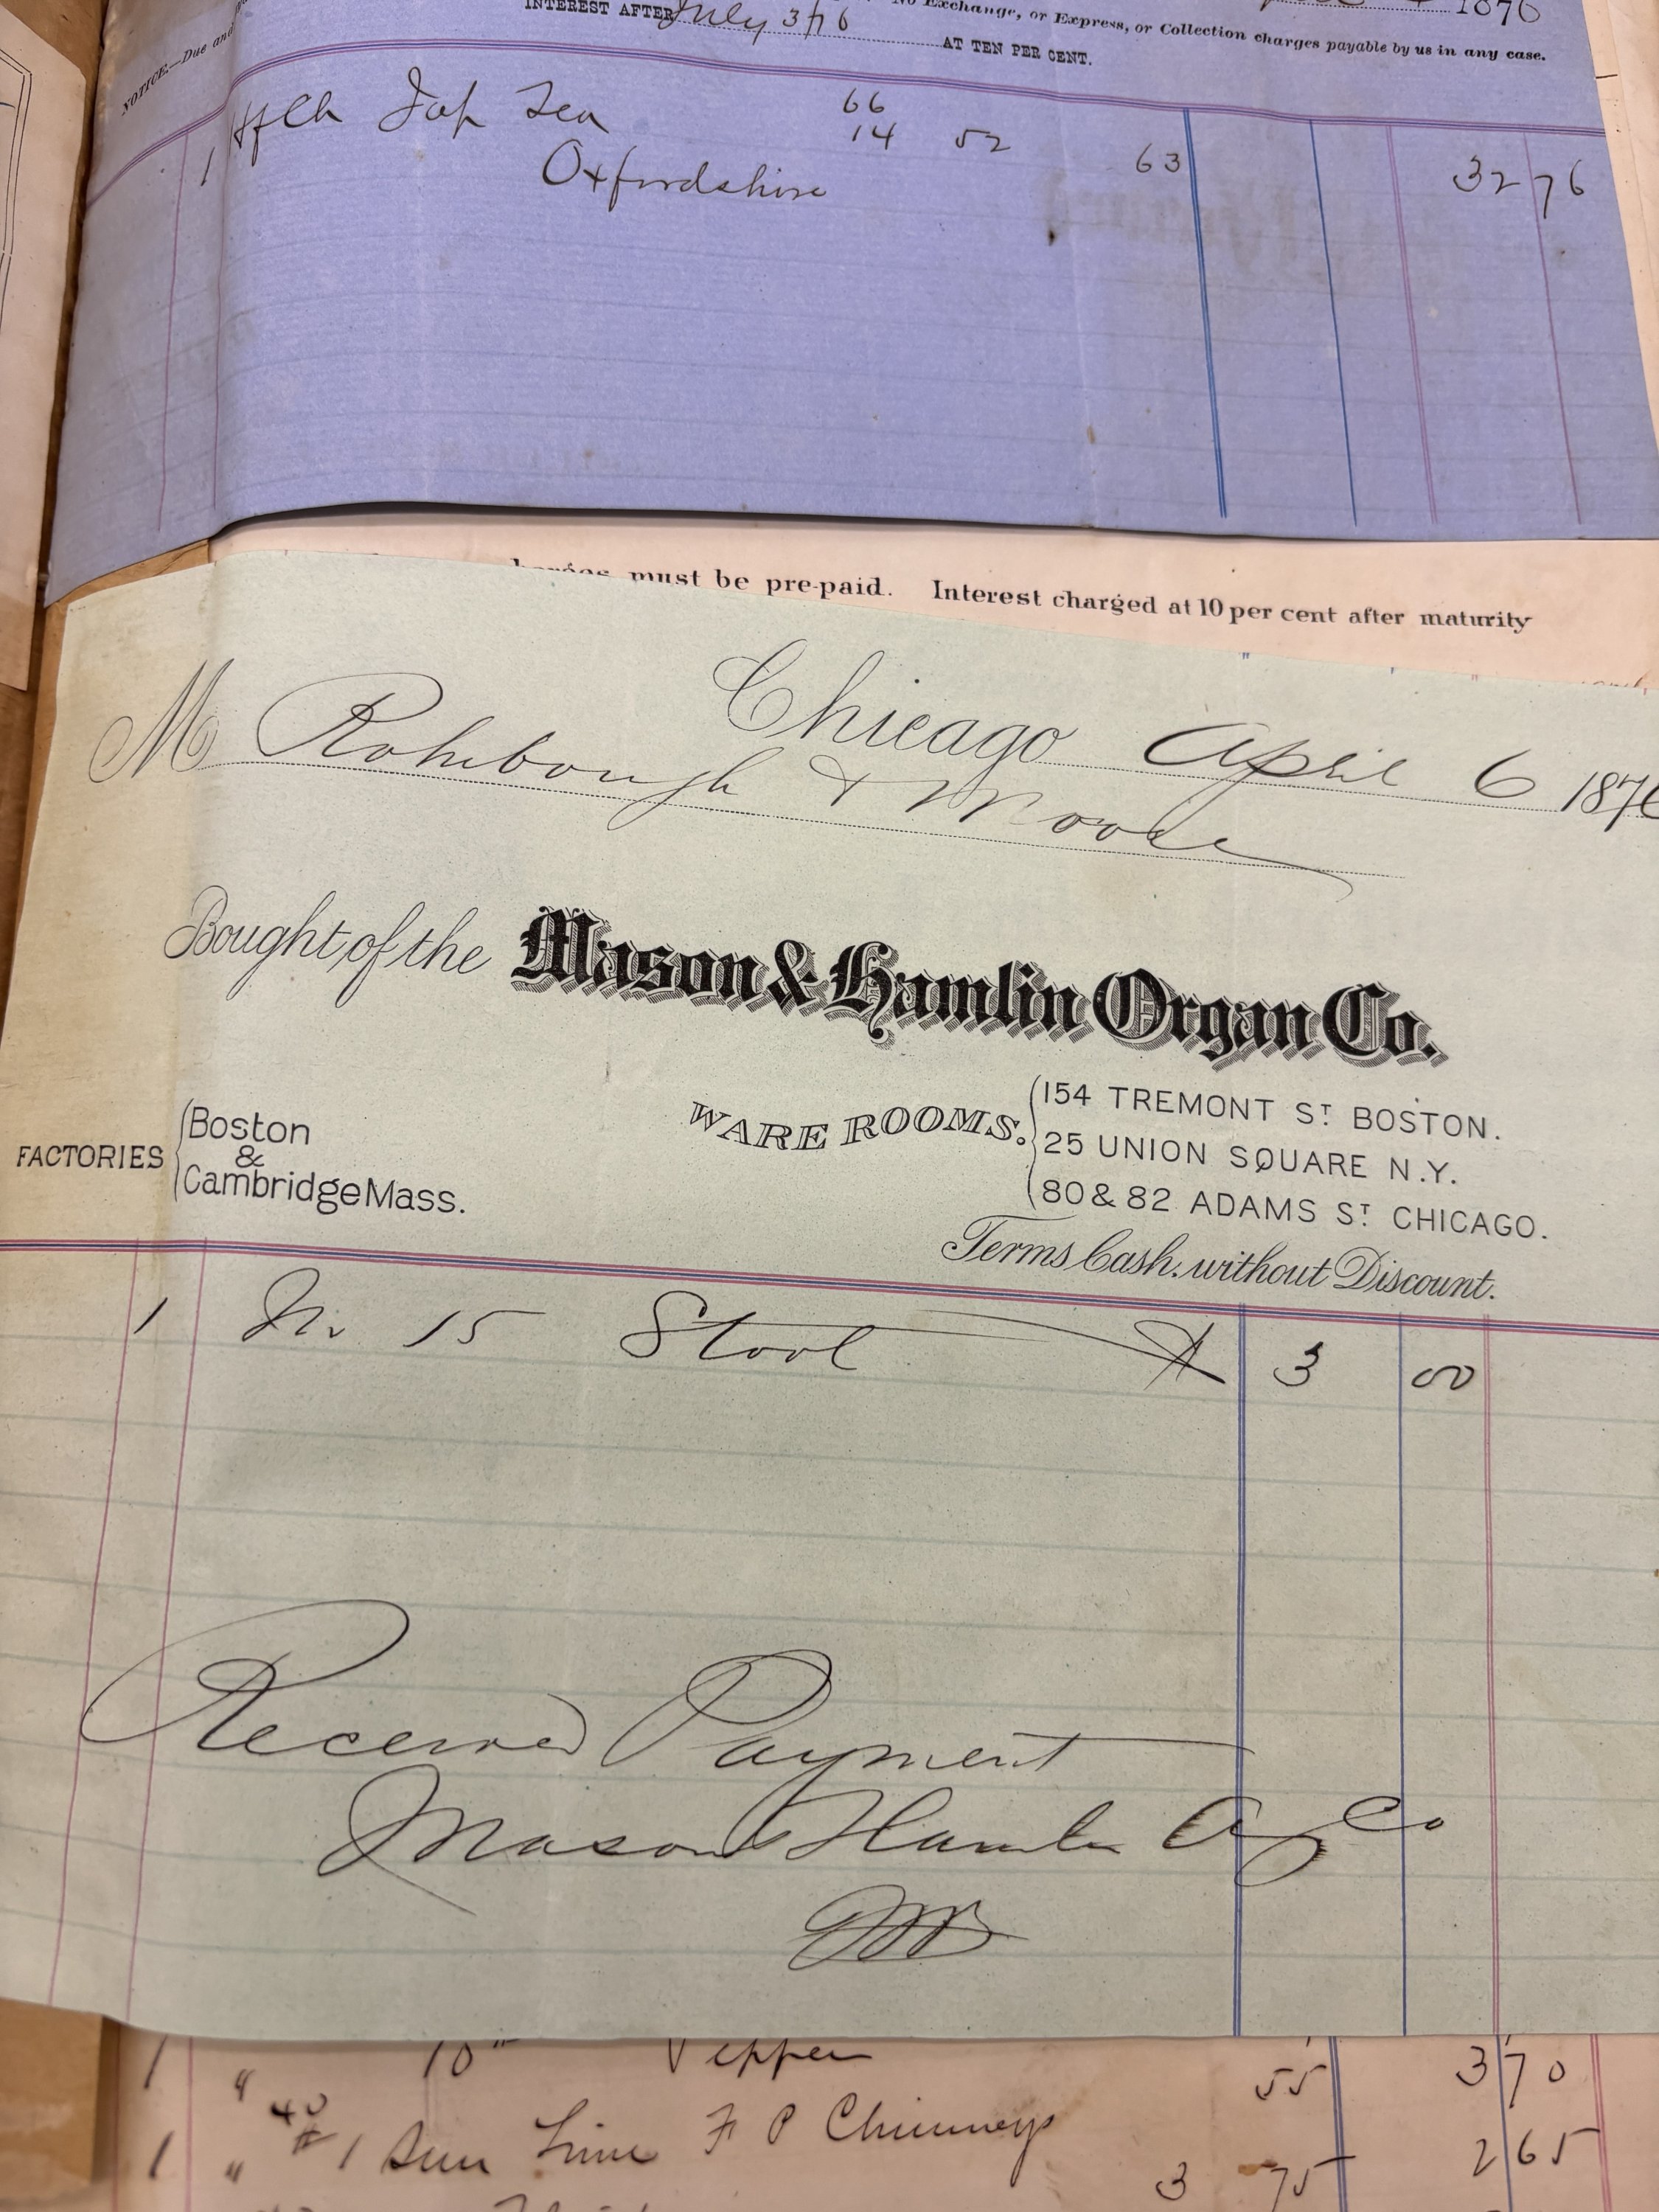 1876
INTEREST AFTER July 3/76
No Exchange, or Express, or Collection charges payable by us in any case.
AT TEN PER CENT.
NOTICE.—Due and
1 Hf Ch Jap Tea 66
14 52 63 32 76
Oxfordshire
must be pre-paid. Interest charged at 10 per cent after maturity
Chicago April 6 1876
M Rohrbough & Moore
Bought of the Mason & Hamlin Organ Co.
FACTORIES Boston & Cambridge Mass.
WARE ROOMS.
154 TREMONT ST BOSTON.
25 UNION SQUARE N.Y.
80 & 82 ADAMS ST CHICAGO.
Terms Cash. without Discount.
1 No 15 Stool 3 00
Received Payment
Mason & Hamlin Org Co
1 " 10" Pepper 55 3 70
1 " 40 # 1 Sun Lime F P Chimneys 3 75 2 65